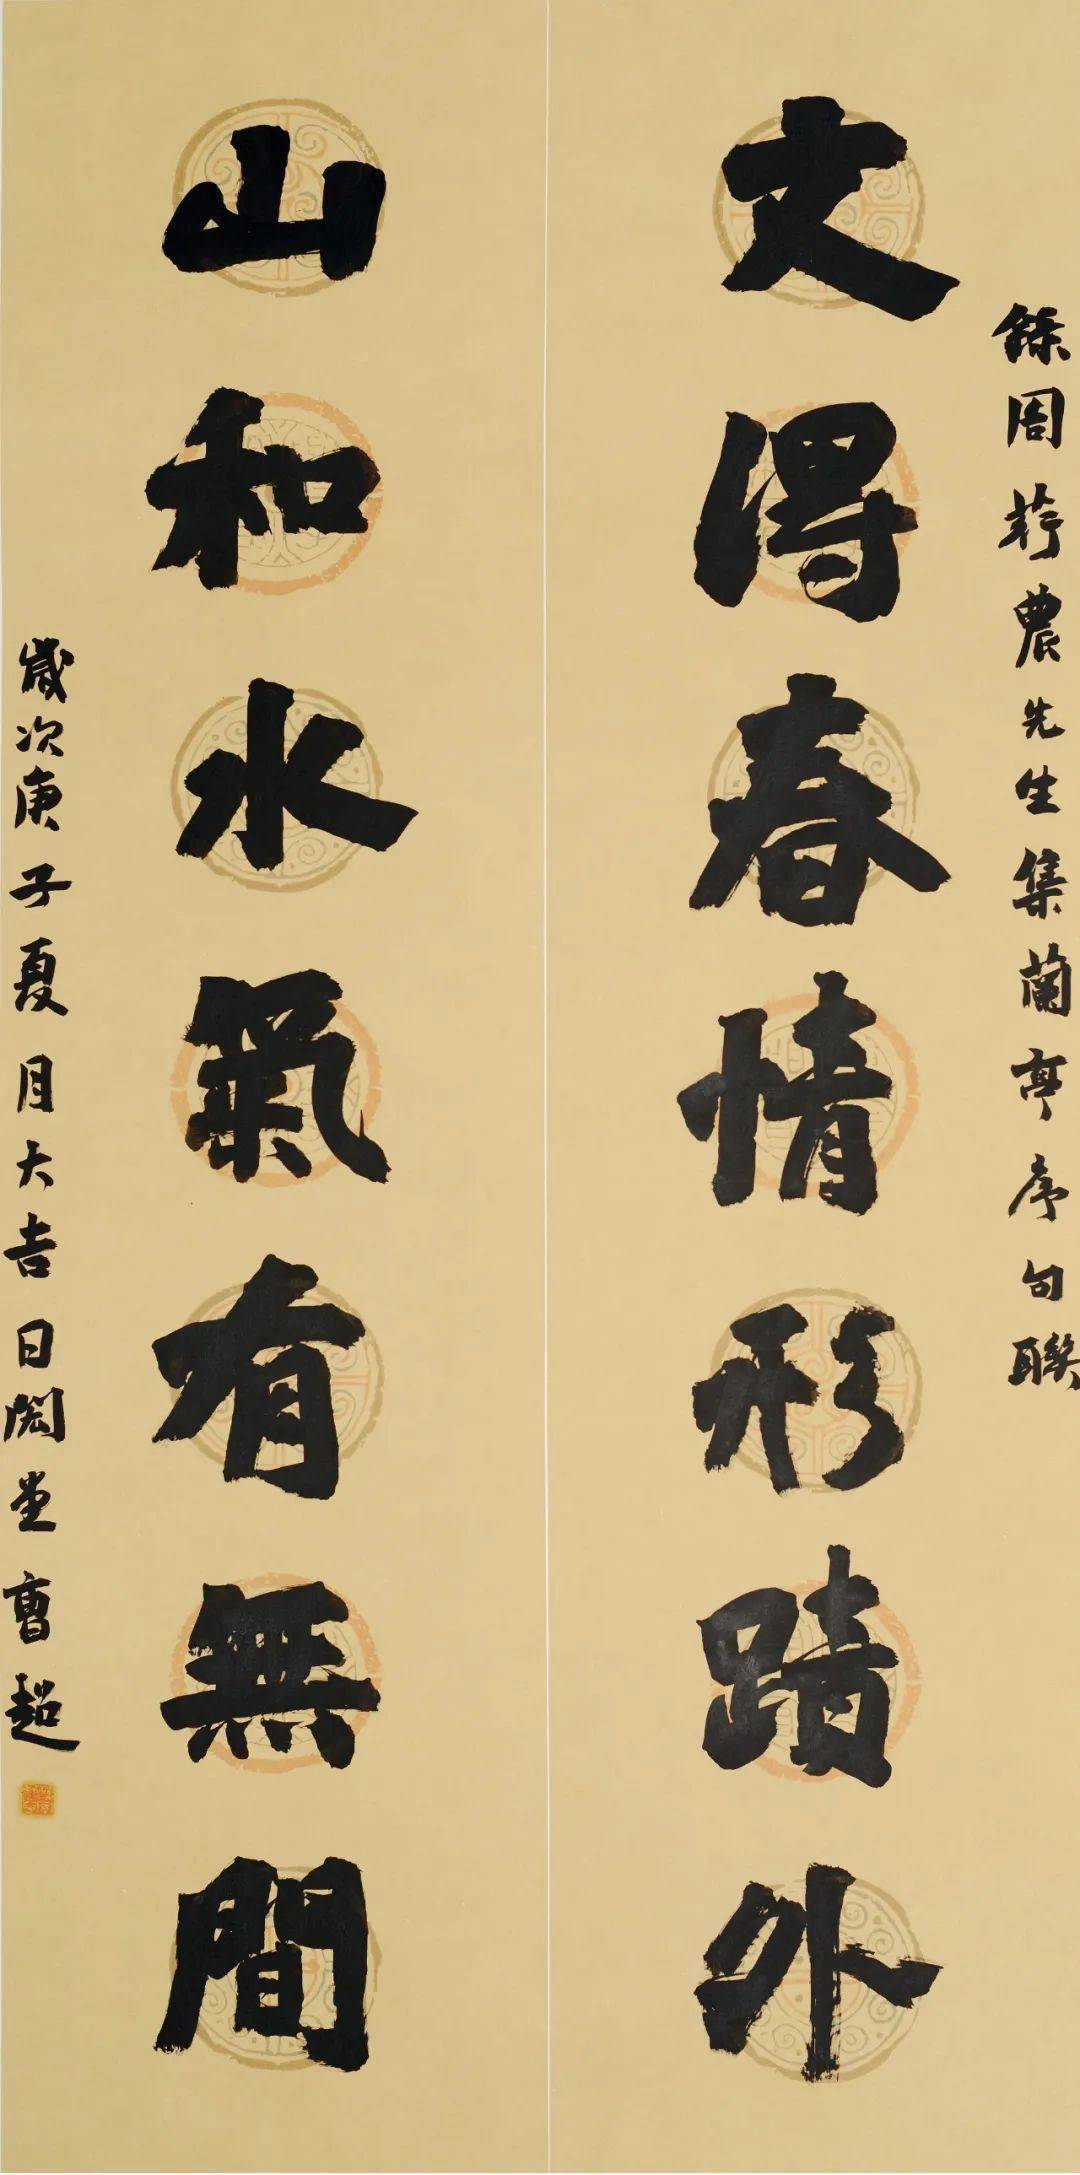 錄周荇農先生集蘭亭序句聯
文得春情形蹟外
山和水氣有無間
歲次庚子夏月大吉日閎堂曹超